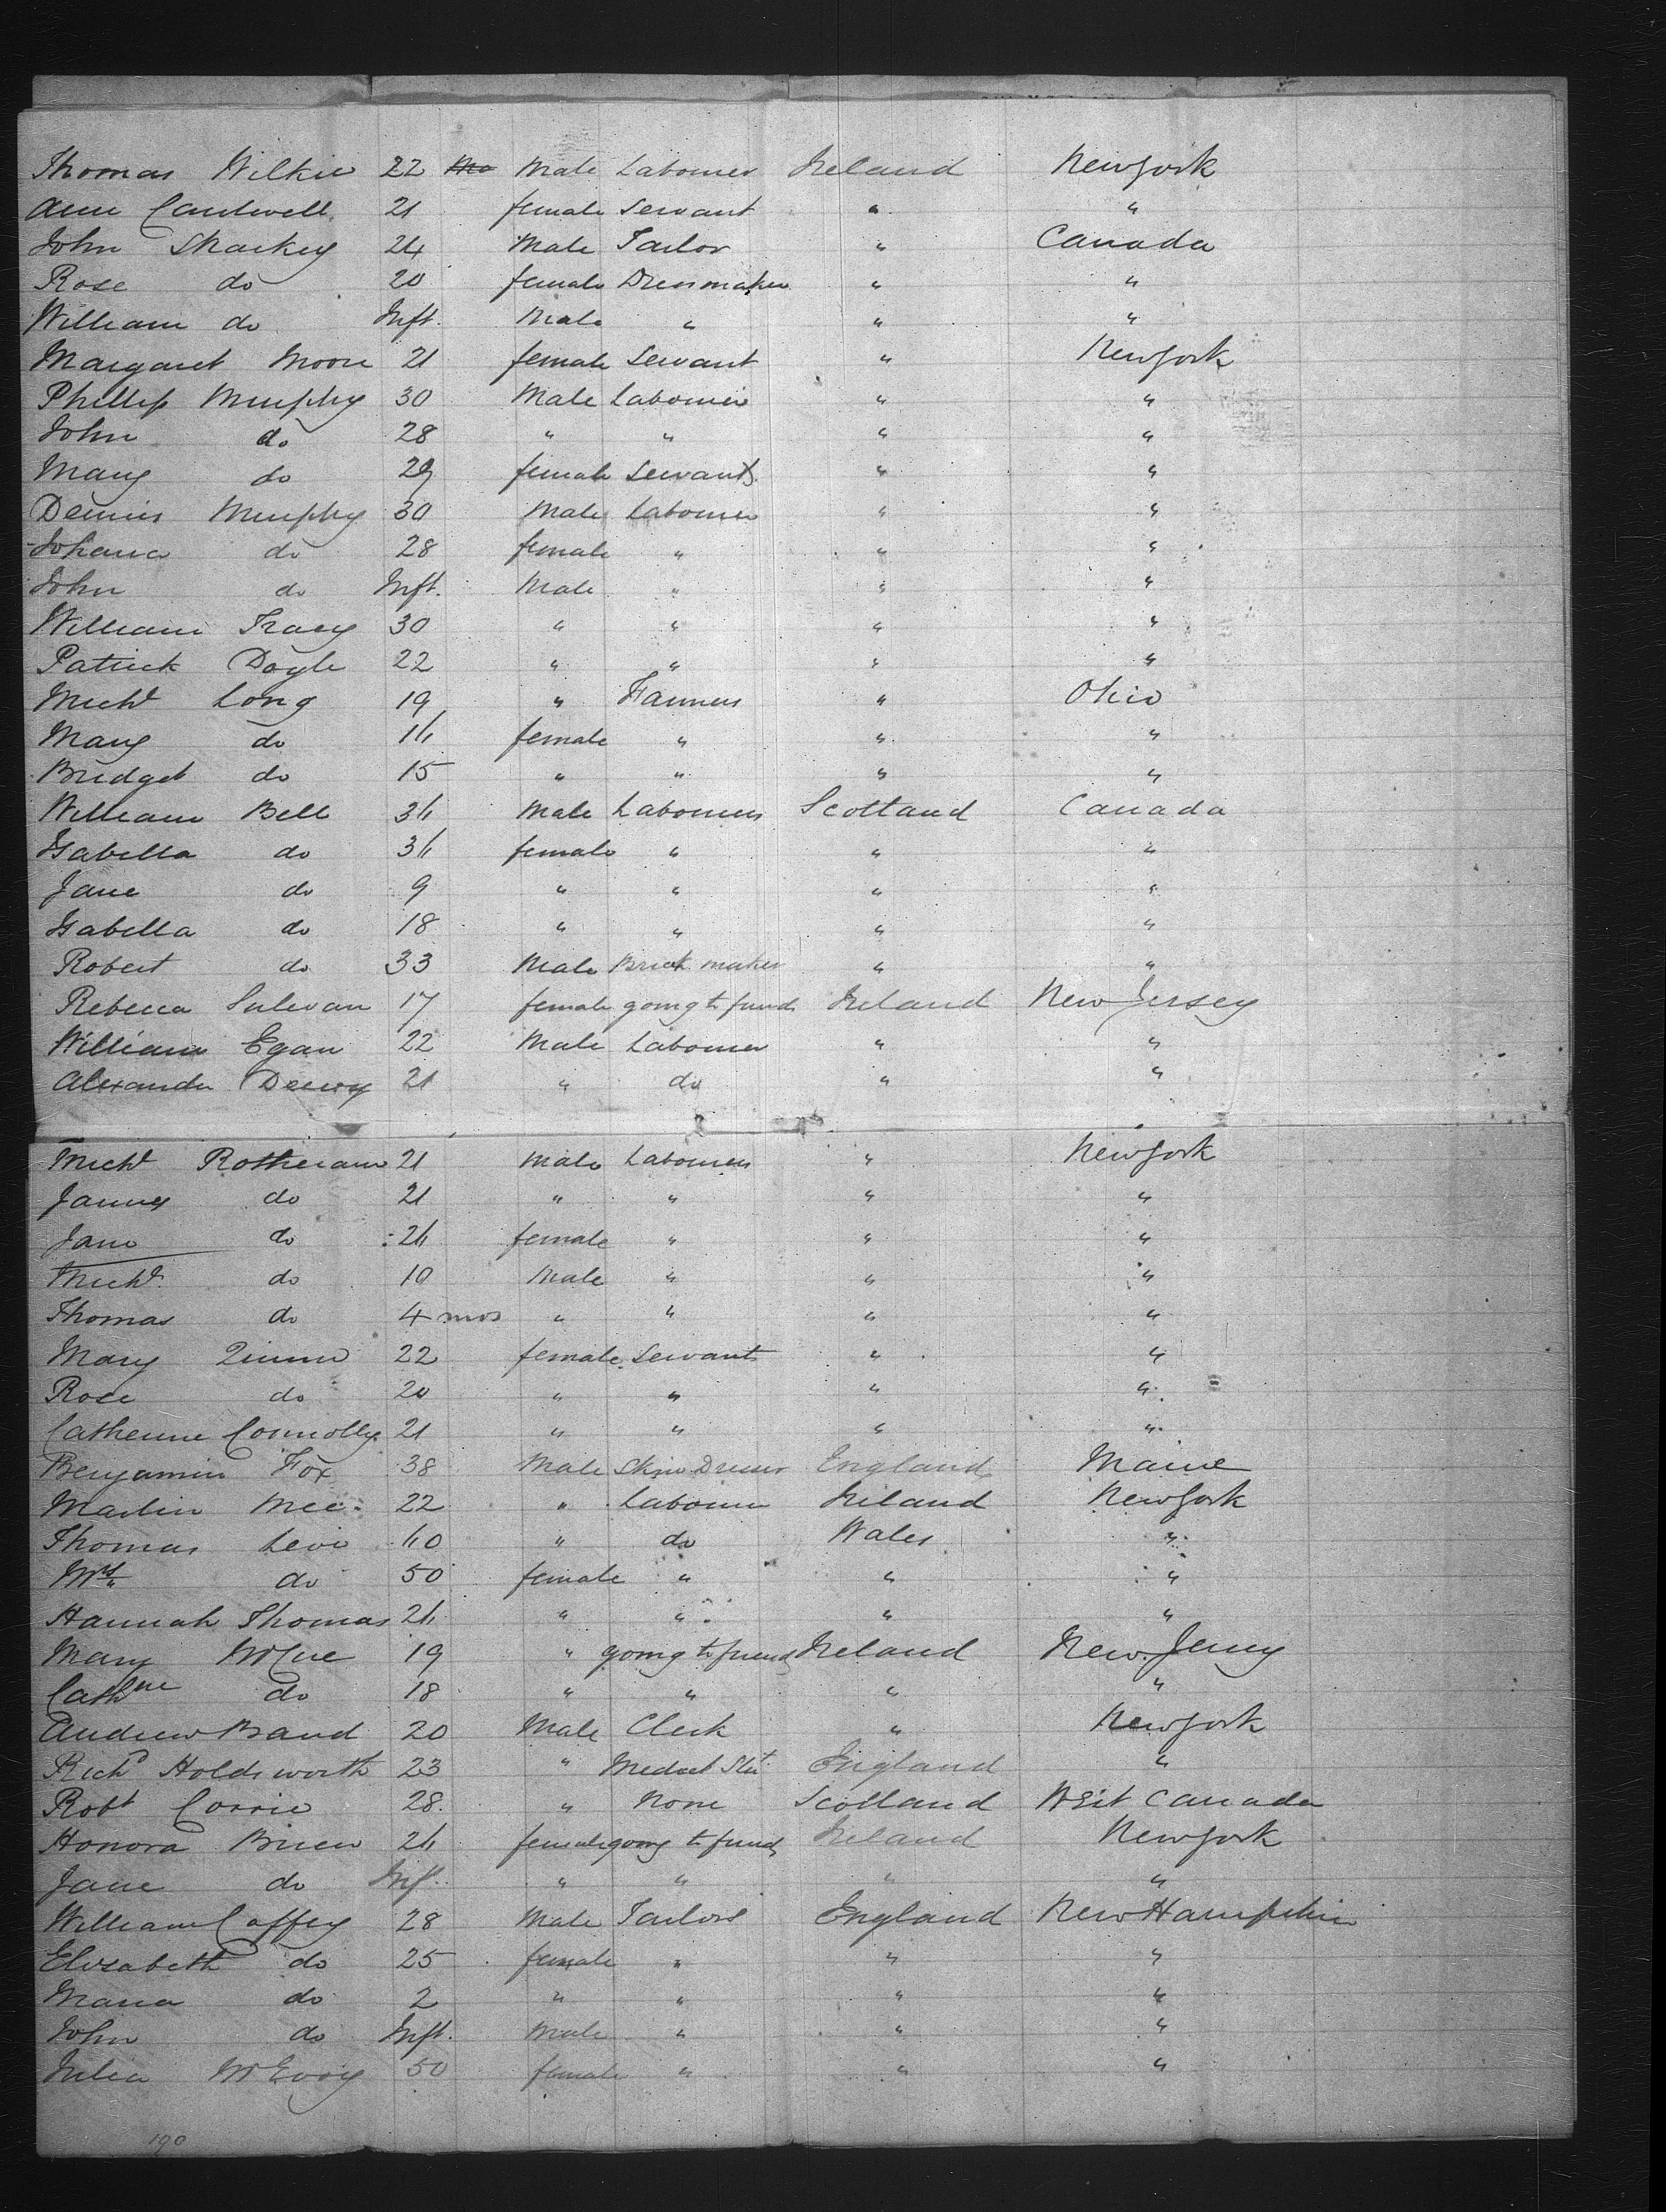 Thomas Wilkie 22 Mo Male Labourer Ireland New York
Ann Cardwell 21 female Servant " "
John Sharkey 24 Male Tailor " Canada
Rose do 20 female Dressmaker " "
William do Inft. Male " " "
Margaret Moore 21 female Servant " New York
Phillip Murphy 30 Male Labourer " "
John do 28 " " " "
Mary do 29 female Servant " "
Dennis Murphy 30 Male Labourer " "
Johana do 28 female " " "
John do Inft. Male " " "
William Tracy 30 " " " "
Patrick Doyle 22 " " " "
Michl Long 19 " Farmers " Ohio
Mary do 16 female " " "
Bridget do 15 " " " "
William Bell 36 Male Labourers Scotland Canada
Isabella do 36 female " " "
Jane do 9 " " " "
Isabella do 18 " " " "
Robert do 33 Male Brick maker " "
Rebecca Sulevan 17 female going to friends Ireland New Jersey
William Egan 22 Male Labourer " "
Alexander 21 " do " "
Michl Rotheram 21 Male Labourers " New York
James do 21 " " " "
Jane do 26 female " " "
Michl do 10 Male " " "
Thomas do 4 mos " " " "
Mary Quinn 22 female Servants " "
Rose do 20 " " " "
Catherine Connolly 21 " " " "
Benjamin Fox 38 Male Skin Dresser England Maine
Martin Mee 22 " Labourer Ireland New York
Thomas Levi 60 " do Wales "
Mrs do 50 female " " "
Hannah Thomas 26 " " " "
Mary McCue 19 " going to friends Ireland New Jersey
Cathne do 18 " " " "
Andrew Brand 20 Male Clerk " New York
Richd Holdsworth 23 " Medical Stut England "
Robt Corrie 28 " None Scotland West Canada
Honora Brien 26 female going to friends Ireland New York
Jane do Inf. " " " "
William Caffey 28 Male Tailors England New Hampshire
Elizabeth do 25 female " " "
Maria do 2 " " " "
John do Inft. Male " " "
Julia McEvoy 50 female " " "
190